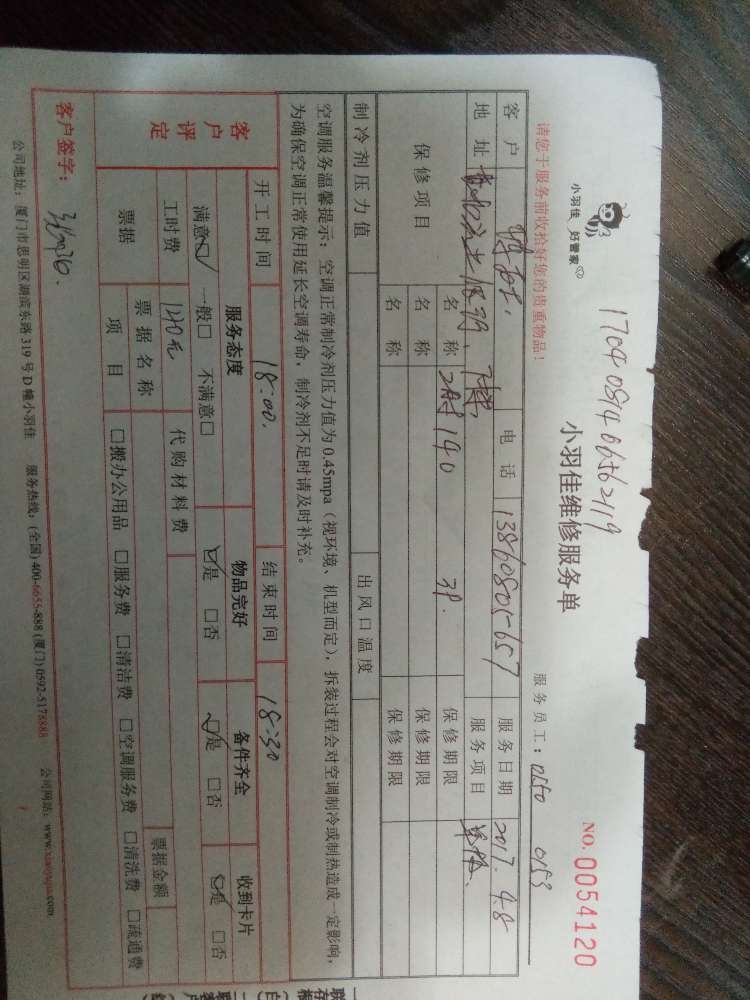 1704081406562119
小羽佳 好管家
小羽佳维修服务单
NO. 0054120
请您于服务前收拾好您的贵重物品!
服务员工: 0550 0153
客户 电话 13860805657 服务日期 2017.4.8
地址 服务项目
保修项目 名称 2对140 3P. 保修期限
名称 保修期限
名称 保修期限
制冷剂压力值 出风口温度
空调服务温馨提示:空调正常制冷剂压力值为0.45mpa(视环境、机型而定),拆装过程会对空调制冷或制热造成一定影响,
为确保空调正常使用延长空调寿命,制冷剂不足时请及时补充。
客户评定
开工时间 18:00. 结束时间 18:30
服务态度 物品完好 备件齐全 收到卡片
满意☑ 一般□ 不满意□ ☑是 □否 ☑是 □否 ☑是 □否
工时费 120元 代购材料费
票据 票据名称 票据金额
项目 □搬办公用品 □服务费 □清洁费 □空调服务费 □清洗费 □疏通费
客户签字:
公司地址:厦门市思明区湖滨东路319号D幢小羽佳 服务热线:(全国)400-6655-888 (厦门)0592-5178888 公司网站:www.xiaoyujia.com